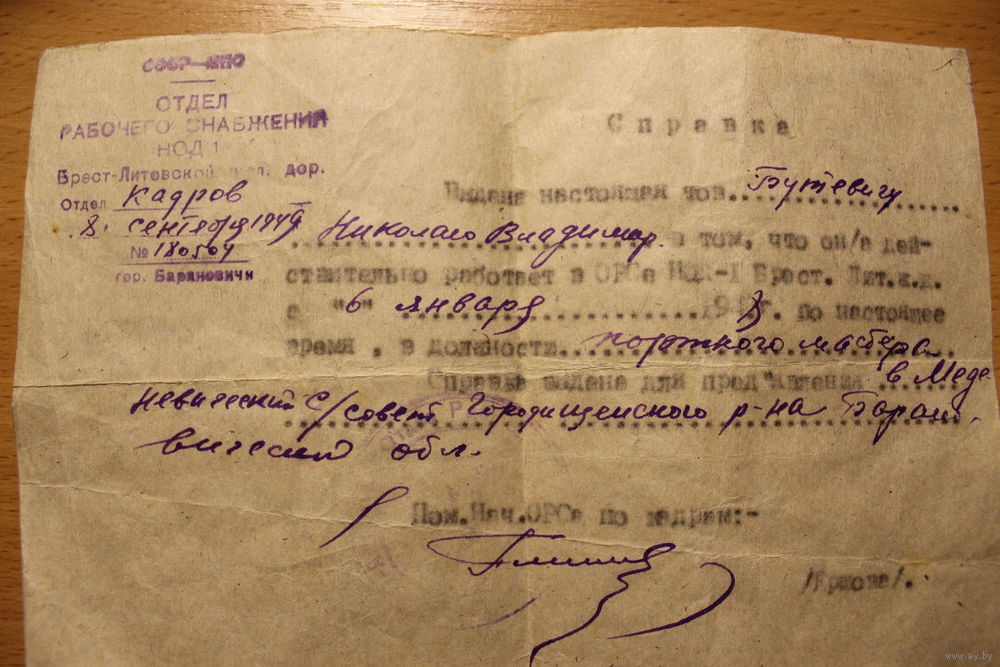 СССР—МПС
ОТДЕЛ
РАБОЧЕГО СНАБЖЕНИЯ
НОД 1
Брест-Литовской жел. дор.
Отдел Кадров
8. сентября 1949
№ 180504
гор. Барановичи
Справка
Выдана настоящая тов. Бутевичу
Николаю Владимир. в том, что он/а дей-
ствительно работает в ОРСе НОД-1 Брест. Лит.ж.д.
с "6" января 194 г. по настоящее
время, в должности мастера
Справка выдана для пред'явления в Меде
невический с/совет Городищенского р-на Баран
вической обл.
Пом.Нач.ОРСа по кадрам:-
www.ay.by